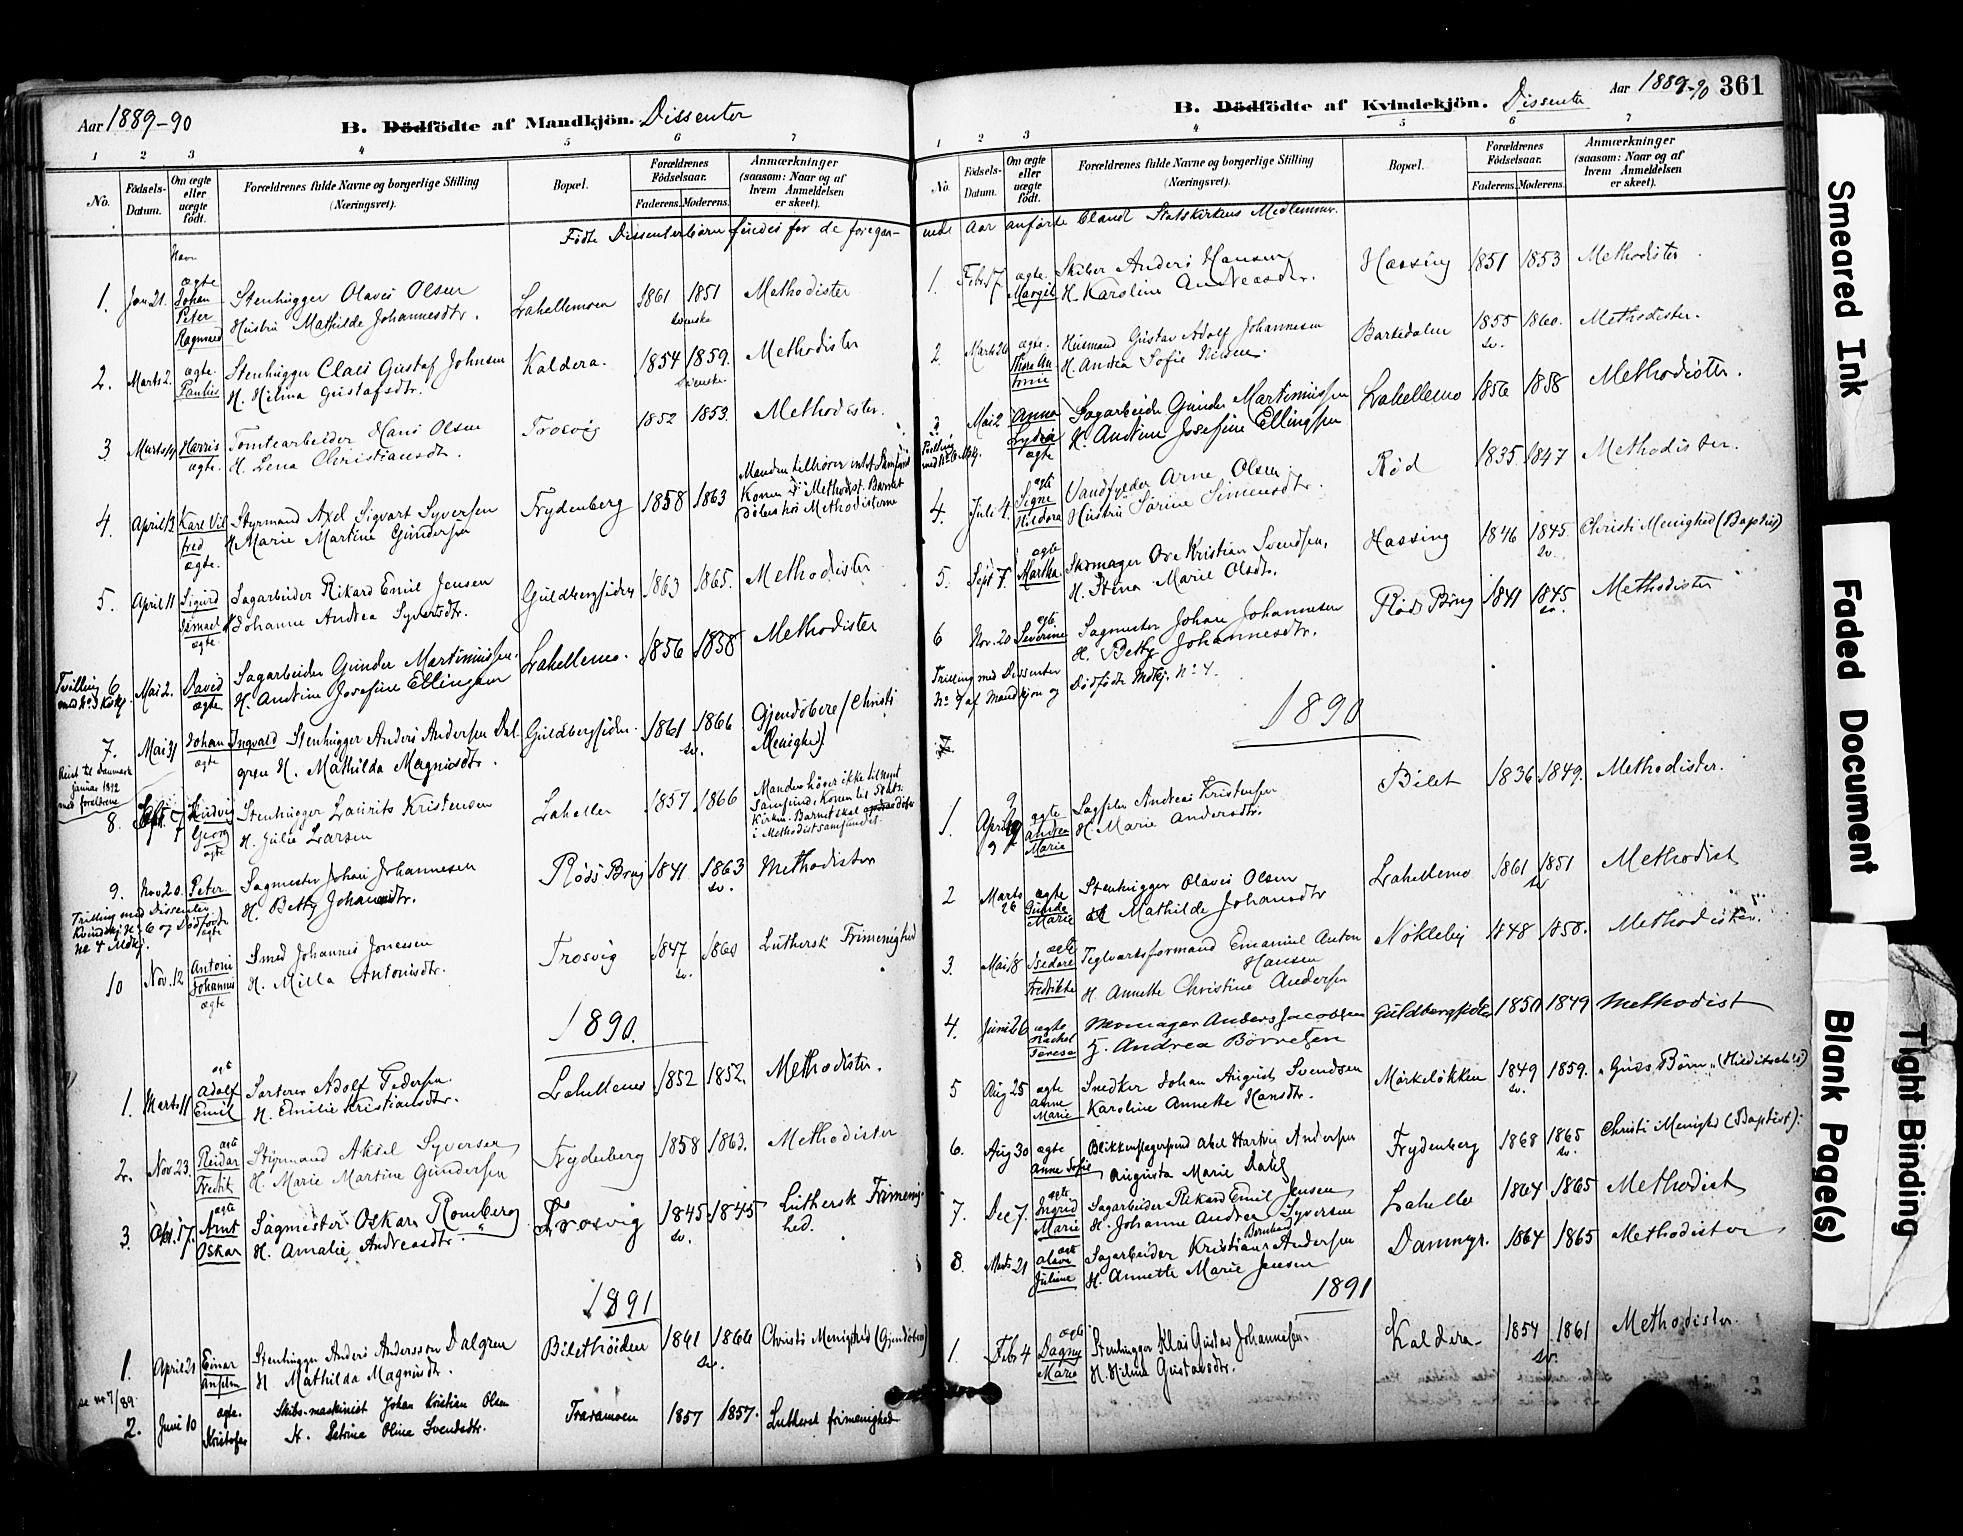 Aar 1889-90
B. Dödfödte af Mandkjön. Dissenter
1 2 3 4 5 6 7
No.
Födsels-Datum.
Om ægte eller uægte födt.
Forældrenes fulde Navne og borgerlige Stilling (Næringsvei).
Bopæl.
Forældrenes Födselsaar.
Faderens. Moderens.
Anmærkninger (saasom: Naar og af hvem Anmeldelsen er skeet).
Födte Dissenterbörn findes for de foregaa-
Navn
1. Jan 21. ægte Johan Peter Ragnvald
Stenhugger Olaves Olsen
Hustru Mathilde Johannesdtr.
Lahellemoen 1861 1851 svenske Methodister
2. Marts 2. ægte. Paulus
Stenhugger Claes Gustaf Johnsen
H. Hilma Gustafsdtr.
Kaldera. 1854 1859. svenske. Methodister
3 Marts 14 Harris ægte.
Tomtearbeider Hans Olsen
H. Lena Christiansdtr.
Trosvig 1852 1853. Methodister.
4. April 13 Karl Vilfred ægte.
Styrmand Axel Sigvart Syversen
H. Marie Martine Gundersen
Frydenberg 1858 1863
Manden tilhører intet Samfund
Konen Methodist. Barnet
döbes hos Methodisterne
5. April 11 Sigurd Ismael ægte
Sagarbeider Rikard Emil Jensen
H. Johanne Andrea Syvertsdtr.
Guldbergsiden 1863 1865. Methodister
Tvilling med No 3 Kvkj.
6 Mai 2. David ægte
Sagarbeider Gunder Martiniussen.
H. Andrine Josefine Ellingsen
Lahellemo. 1856 1858 Methodister
7. Mai 31 Johan Ingvald ægte
Stenhugger Anders Andersen Dalgren H. Mathilda Magnusdtr.
Guldbergsiden. 1861 1866 sv. Gjendöbere/Christi Menighed
Reist til Danmark januar 1892 med forældrene
8. Sept. 7 Ludvig Georg ægte
Stenhugger Laurits Kristensen
H. Julie Larsen
Lahellen 1857 1866
Manden hörer ikke til noget
Samfund, Konen til Stats-
Kirken. Barnet skal döbes
i Methodistsamfundet.
9. Nov 20. Peter ægte
Sagmester Johan Johannesen
H. Betty Johannesdtr.
Röds Brug 1841 1863 sv. Methodister
Trilling med Dissenter
Kvindekj. No 6 og Dödfödt
No 4 Mdkj.
10 Nov. 12 Antoni Johannes ægte
Smed Johannes Jonessen
H. Milla Antonisdtr.
Trosvig 1847 sv. 1860 Luthersk Frimenighed
1890.
1. Marts 11 ægte Adolf Emil
Sorterer Adolf Pedersen.
H. Emilie Kristiansdtr.
Lahellemo 1852 1852. Methodister.
2. Nov. 23. ægte Reidar Fredrik
Styrmand Aksel Syversen
H. Marie Martine Gundersen
Frydenberg 1858 1863. Methodister
3. Okt. 17. ægte Arnt Oskar
Sagmester Oskar Romberg
H. Amalie Andreasdtr.
Trosvig 1845 sv. 1845 Luthersk Frimenighed.
1891
1. April 21 Einar Anselm
Stenhugger Anders Andersson Dalgren
H Mathilda Magnusdtr.
Bilethöiden 1861 1866 sv. Christi Menighed (Gjendöbere)
se nr 7/89
2. Juni 10 ægte. Kristofer
Skibs-maskinist Johan Kristian Olsen
H. Petrine Oline Svendsdtr.
Traramoen 1857 1857. Luthersk frimenighed
B. Dödfödte af Kvindekjön. Dissenter
Aar 1889-90 361
1 2 3 4 5 6 7
No.
Födsels-Datum.
Om ægte eller uægte födt.
Forældrenes fulde Navne og borgerlige Stilling (Næringsvei).
Bopæl.
Forældrenes Födselsaar.
Faderens. Moderens.
Anmærkninger (saasom: Naar og af hvem Anmeldelsen er skeet).
ende Aar anförte blandt Statskirkens Medlemmer.
1. Febr 17 ægte. Margit
Skiber Anders Hansen
H. Karoline Andreasdtr.
Hassing 1851 1853 Methodister
2. Marts 26 ægte. Thora Antonie
Husmand Gustav Adolf Johannesen
H. Andrea Sofie Nilsen.
Barkedalen 1855 sv. 1860. Methodister.
3 Mai 2 Anna Lydia ægte
Sagarbeider Gunder Martiniussen
H. Andrine Josefine Ellingsen
Lahellemo 1856 1858 Methodister.
Tvilling med No 6 Mkj.
4. Juli 4. ægte Signe Hildora
Vandfylder Arne Olsen
Hustru Sörine Simensdtr.
Röd 1835 1847 Methodister.
5. Sept 7. ægte Martha
Skomager Ove Kristian Svendsen,
H. Stina Marie Olsdtr.
Hassing 1846 1845. sv. Christi Menighed (Baptist)
6 Nov. 20 ægte Severine
Sagmester Johan Johannesen
H. Betty Johannesdtr.
Röds Brug 1841 1845 sv. Methodister
Trilling med Dissenter
No 9 af Mandkjön og Dödfödte Mdkj. No 4.
1890
1. April 9 ægte Andrea Marie
Sagfiler Andreas Kristensen
H. Marie Andersdtr.
Bilet 1836 1849. Methodister.
2 Marts 26 ægte Gunda Marie
Stenhugger Olaves Olsen
H Mathilde Johansdtr
Lahellemo 1861 1851 sv Methodist
3. Mai 18 ægte Isedore Fredrikke
Teglværksformand Emanuel Anton Hansen
H Annette Christine Andersen
Nökleby 1848 1850. Methodister.
4. Juni 26 ægte Rachel Teresa
Skomager Anders Jacobsen
H. Andrea Börresen
Guldbergsiden 1850 1849 Methodist
5 Aug 25 ægte Anne Marie
Snedker Johan August Svendsen
Karoline Annette Hansdtr.
Mörkelökken 1849 sv. 1859. "Guds Börn"
6. Aug 30 ægte Anne Sofie
Blikkenslagersvend Abel Hartvig Andersen
Augusta Marie
Frydenberg 1868 1865 sv. Christi Menighd (Baptist).
7. Dec 7. ægte Ingrid Marie
Sagarbeider Rikard Emil Jensen
H. Johanne Andrea Syversen
Lahelle 1864 1865 Methodist
8. Marts 21 ægte Olava Juliane
Sagarbeider Kristian Bernhard Andersen
H. Annette Marie Jensen
Dammyr. 1864 1865 Methodister
1891
1. Febr 4 ægte Dagny Marie
Stenhugger Klas Gustav Johannesen.
H. Hilma Gustavsdtr.
Kaldera 1854 1861 sv. Methodister.
Smeared Ink
Faded Document
Tight Binding
Blank Page(s)